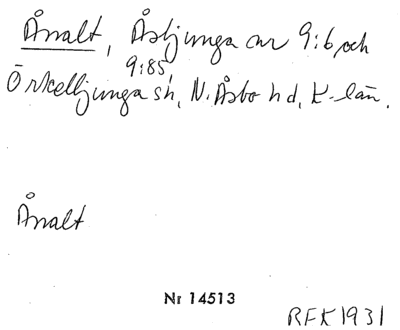 Ånalt, Åsljunga nr 9:6, och
9:85,
Örkelljunga sn, N. Åsbo hd, K-län.
Ånalt
Nr 14513
RFK 1931